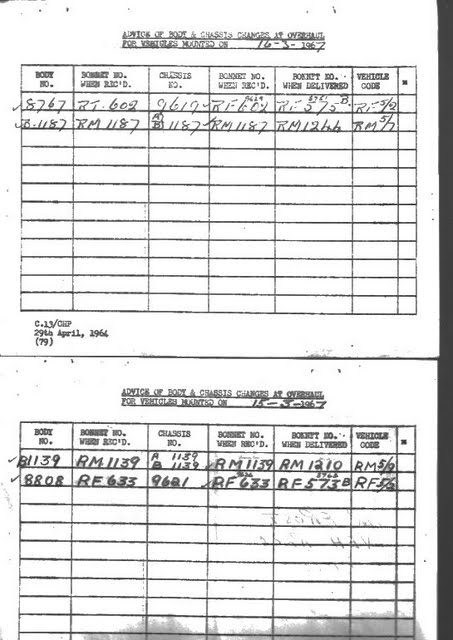 ADVICE OF BODY & CHASSIS CHANGES AT OVERHAUL
FOR VEHICLES MOUNTED ON 16-3-1967
BODY NO. BONNET NO. WHEN REC'D. CHASSIS NO. BONNET NO. WHEN REC'D. BONNET NO. WHEN DELIVERED VEHICLE CODE
8767 RT.602 9619 RF602 RF575B RF5/2
B.1187 RM1187 A B 1187 RM1187 RM1244 RM5/7
C.13/CHP
29th April, 1964
(79)
ADVICE OF BODY & CHASSIS CHANGES AT OVERHAUL
FOR VEHICLES MOUNTED ON 15-3-1967
BODY NO. BONNET NO. WHEN REC'D. CHASSIS NO. BONNET NO. WHEN REC'D. BONNET NO. WHEN DELIVERED VEHICLE CODE
B1139 RM1139 A 1139 B 1139 RM1139 RM1210 RM5/2
8808 RF633 9621 RF633 RF573B